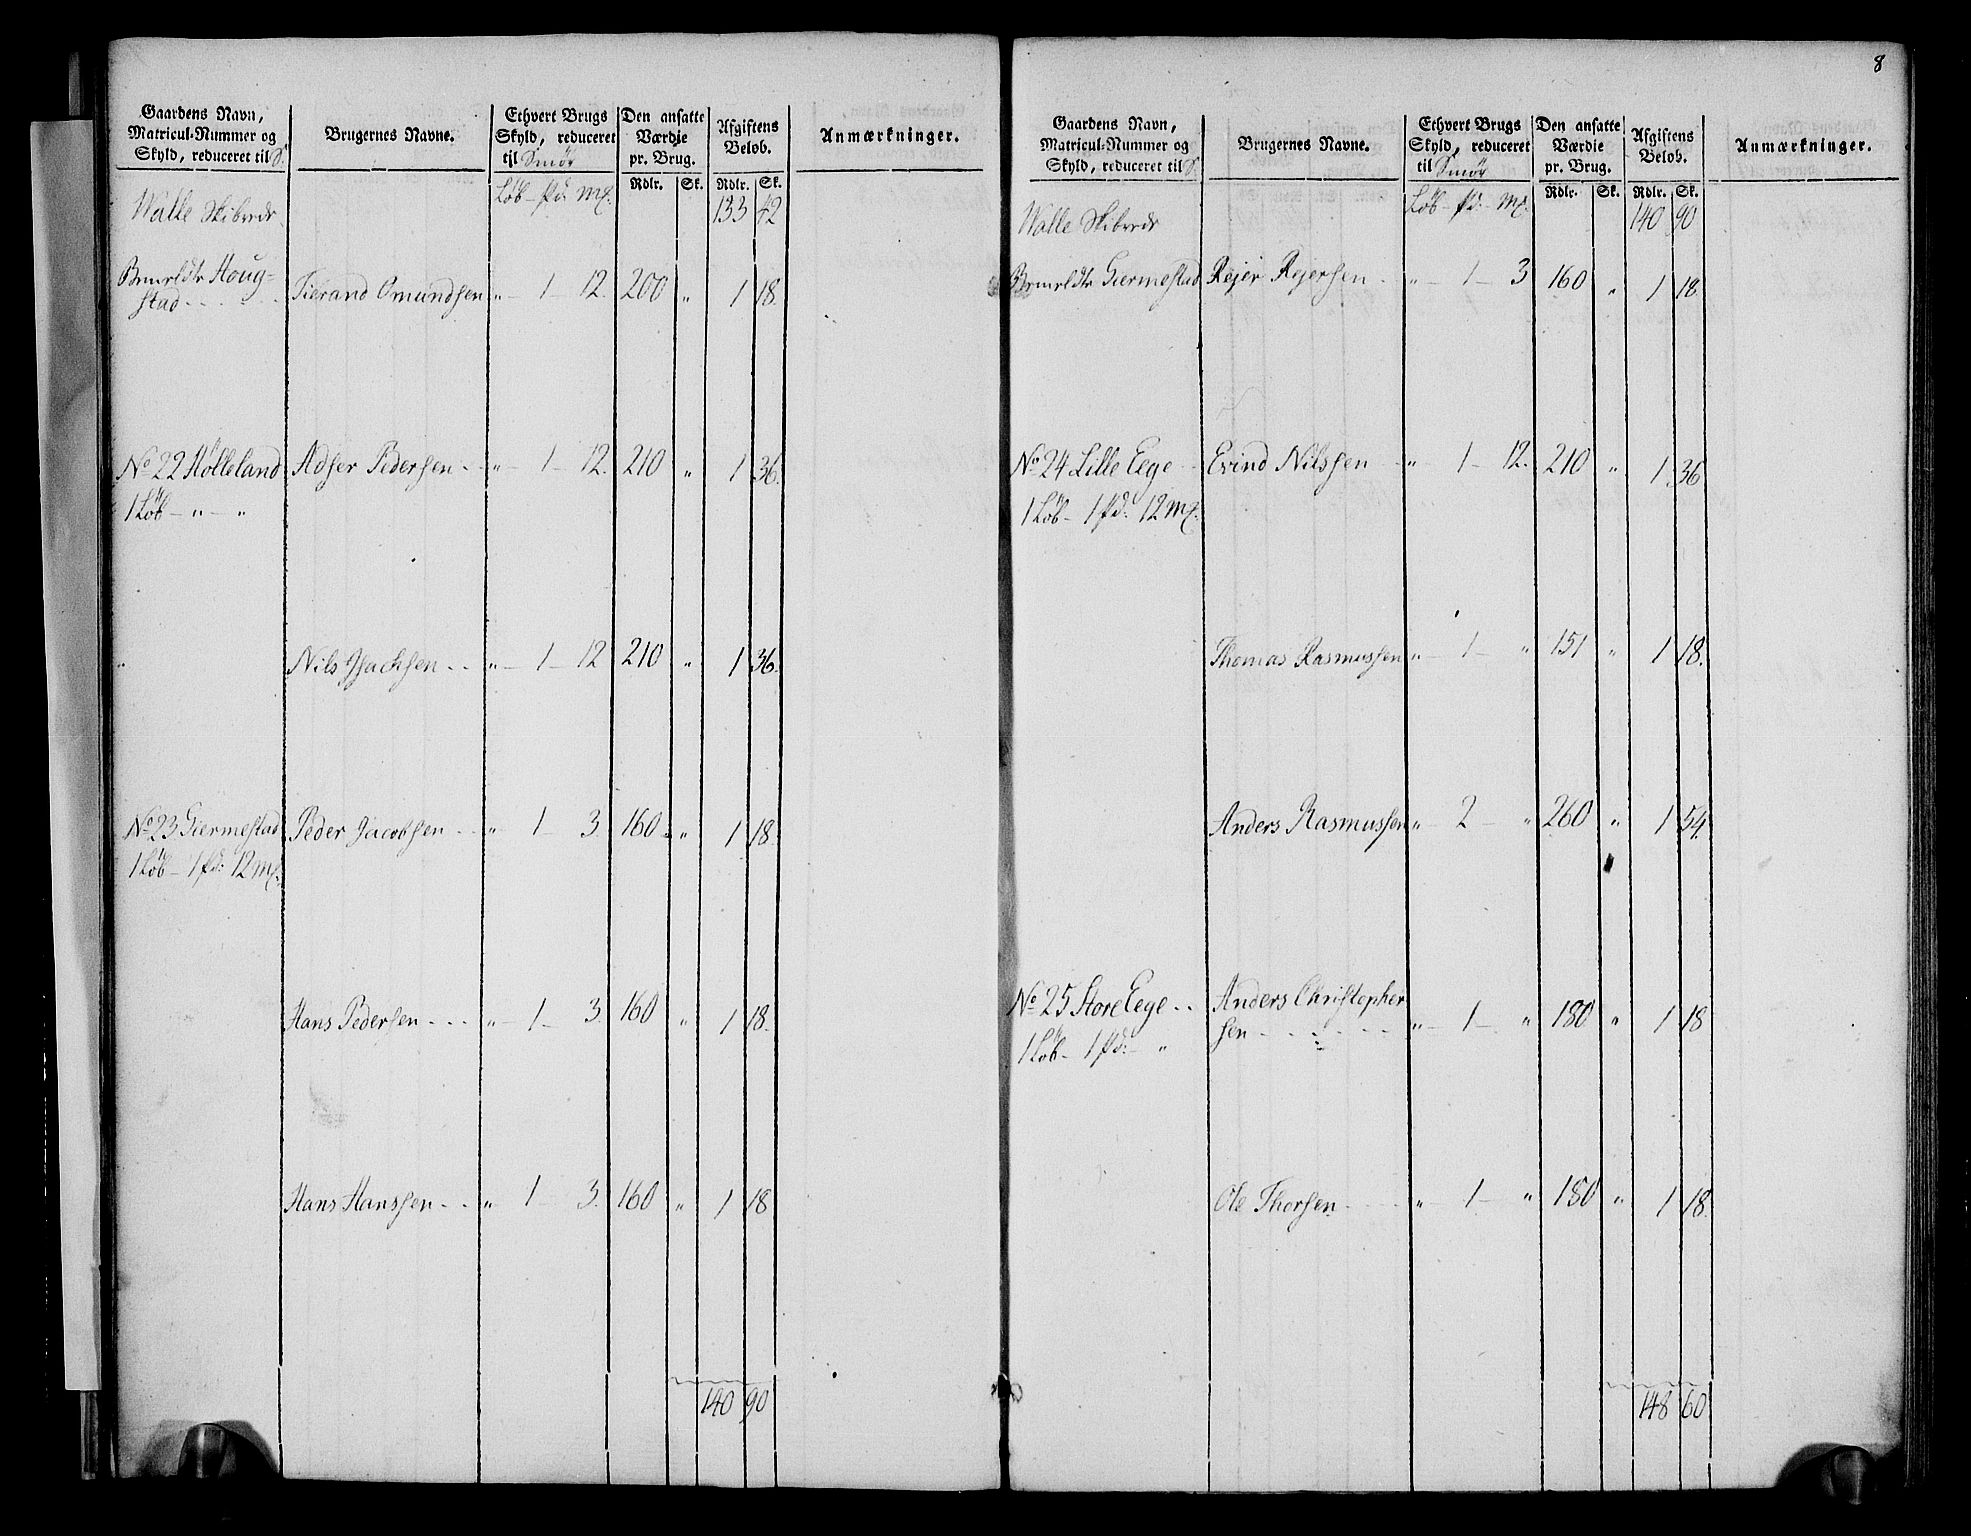 Gaardens Navn,
Matricul-Nummer og
Skyld, reduceret til S.
Brugernes Navne.
Ethvert Brugs
Skyld, reduceret
til Smör
Den ansatte
Værdie
pr. Brug.
Afgiftens
Belob.
Anmærkninger.
Löb - Pd. Mk.
Rdlr. Sk. Rdlr. Sk.
Walle Skibrede 133 42
Houg-
stad - - - - Tierand Omundsen „ - 1 - 12. 200 „ 1 18.
No 22 Hölleland Adser Pedersen - - „ - 1 - 12. 210 „ 1 36.
1 Löb - „ - „
„ Nils Isachsen - - „ - 1 - 12 210 „ 1 36.
No 23 Giermestad Peder Jacobsen - - „ 1 3. 160 „ 1 18.
1 Löb - 1 Pd: 12 Mk.
Hans Pedersen - - - „ - 1 - 3. 160 „ 1 18.
Hans Hanssen - - „ 1 - 3. 160 „ 1 18
140 90
8
Gaardens Navn,
Matricul-Nummer og
Skyld, reduceret til S.
Brugernes Navne.
Ethvert Brugs
Skyld, reduceret
til Smör
Den ansatte
Værdie
pr. Brug.
Afgiftens
Belob.
Anmærkninger.
Löb - Pd. - Mk.
Rdlr. Sk. Rdlr. Sk.
Walle Skibrede 140 90
Giermestad Rejer Rejersen - „ - 1 - 3 160 „ 1 18.
No 24 Lille Eege - - Evind Nilssen - „ - 1 - 12. 210 „ 1 36
1 Löb - 1 Pd: 12 Mk.
Thomas Rasmussen „ - 1 - „ 151 „ 1 18.
Anders Rasmussen „ - 2 - „ 260 „ 1 54.
No 25 Store Eege - - Anders Christopher
sen - - - - - „ - 1 - „ 180 „ 1 18
1 Löb - 1 Pd: - „
Ole Thorsen - - - „ - 1 - „ 180 „ 1 18.
148 60